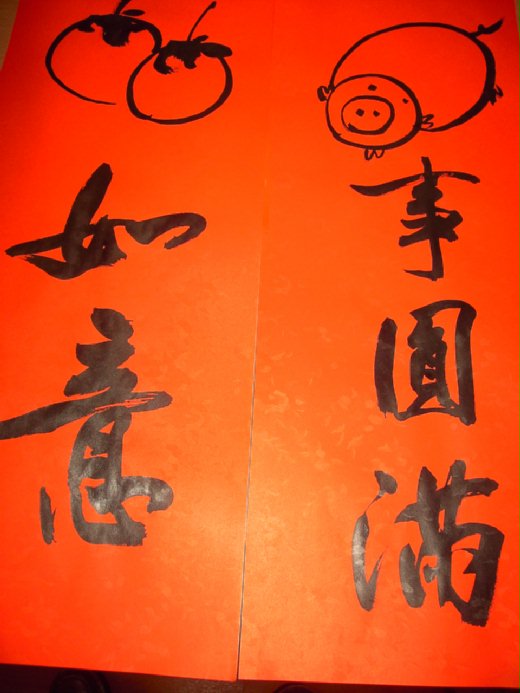 事圓滿
如意